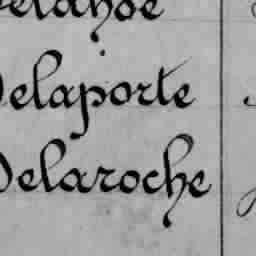 Delahoe
Delaporte
Delaroche